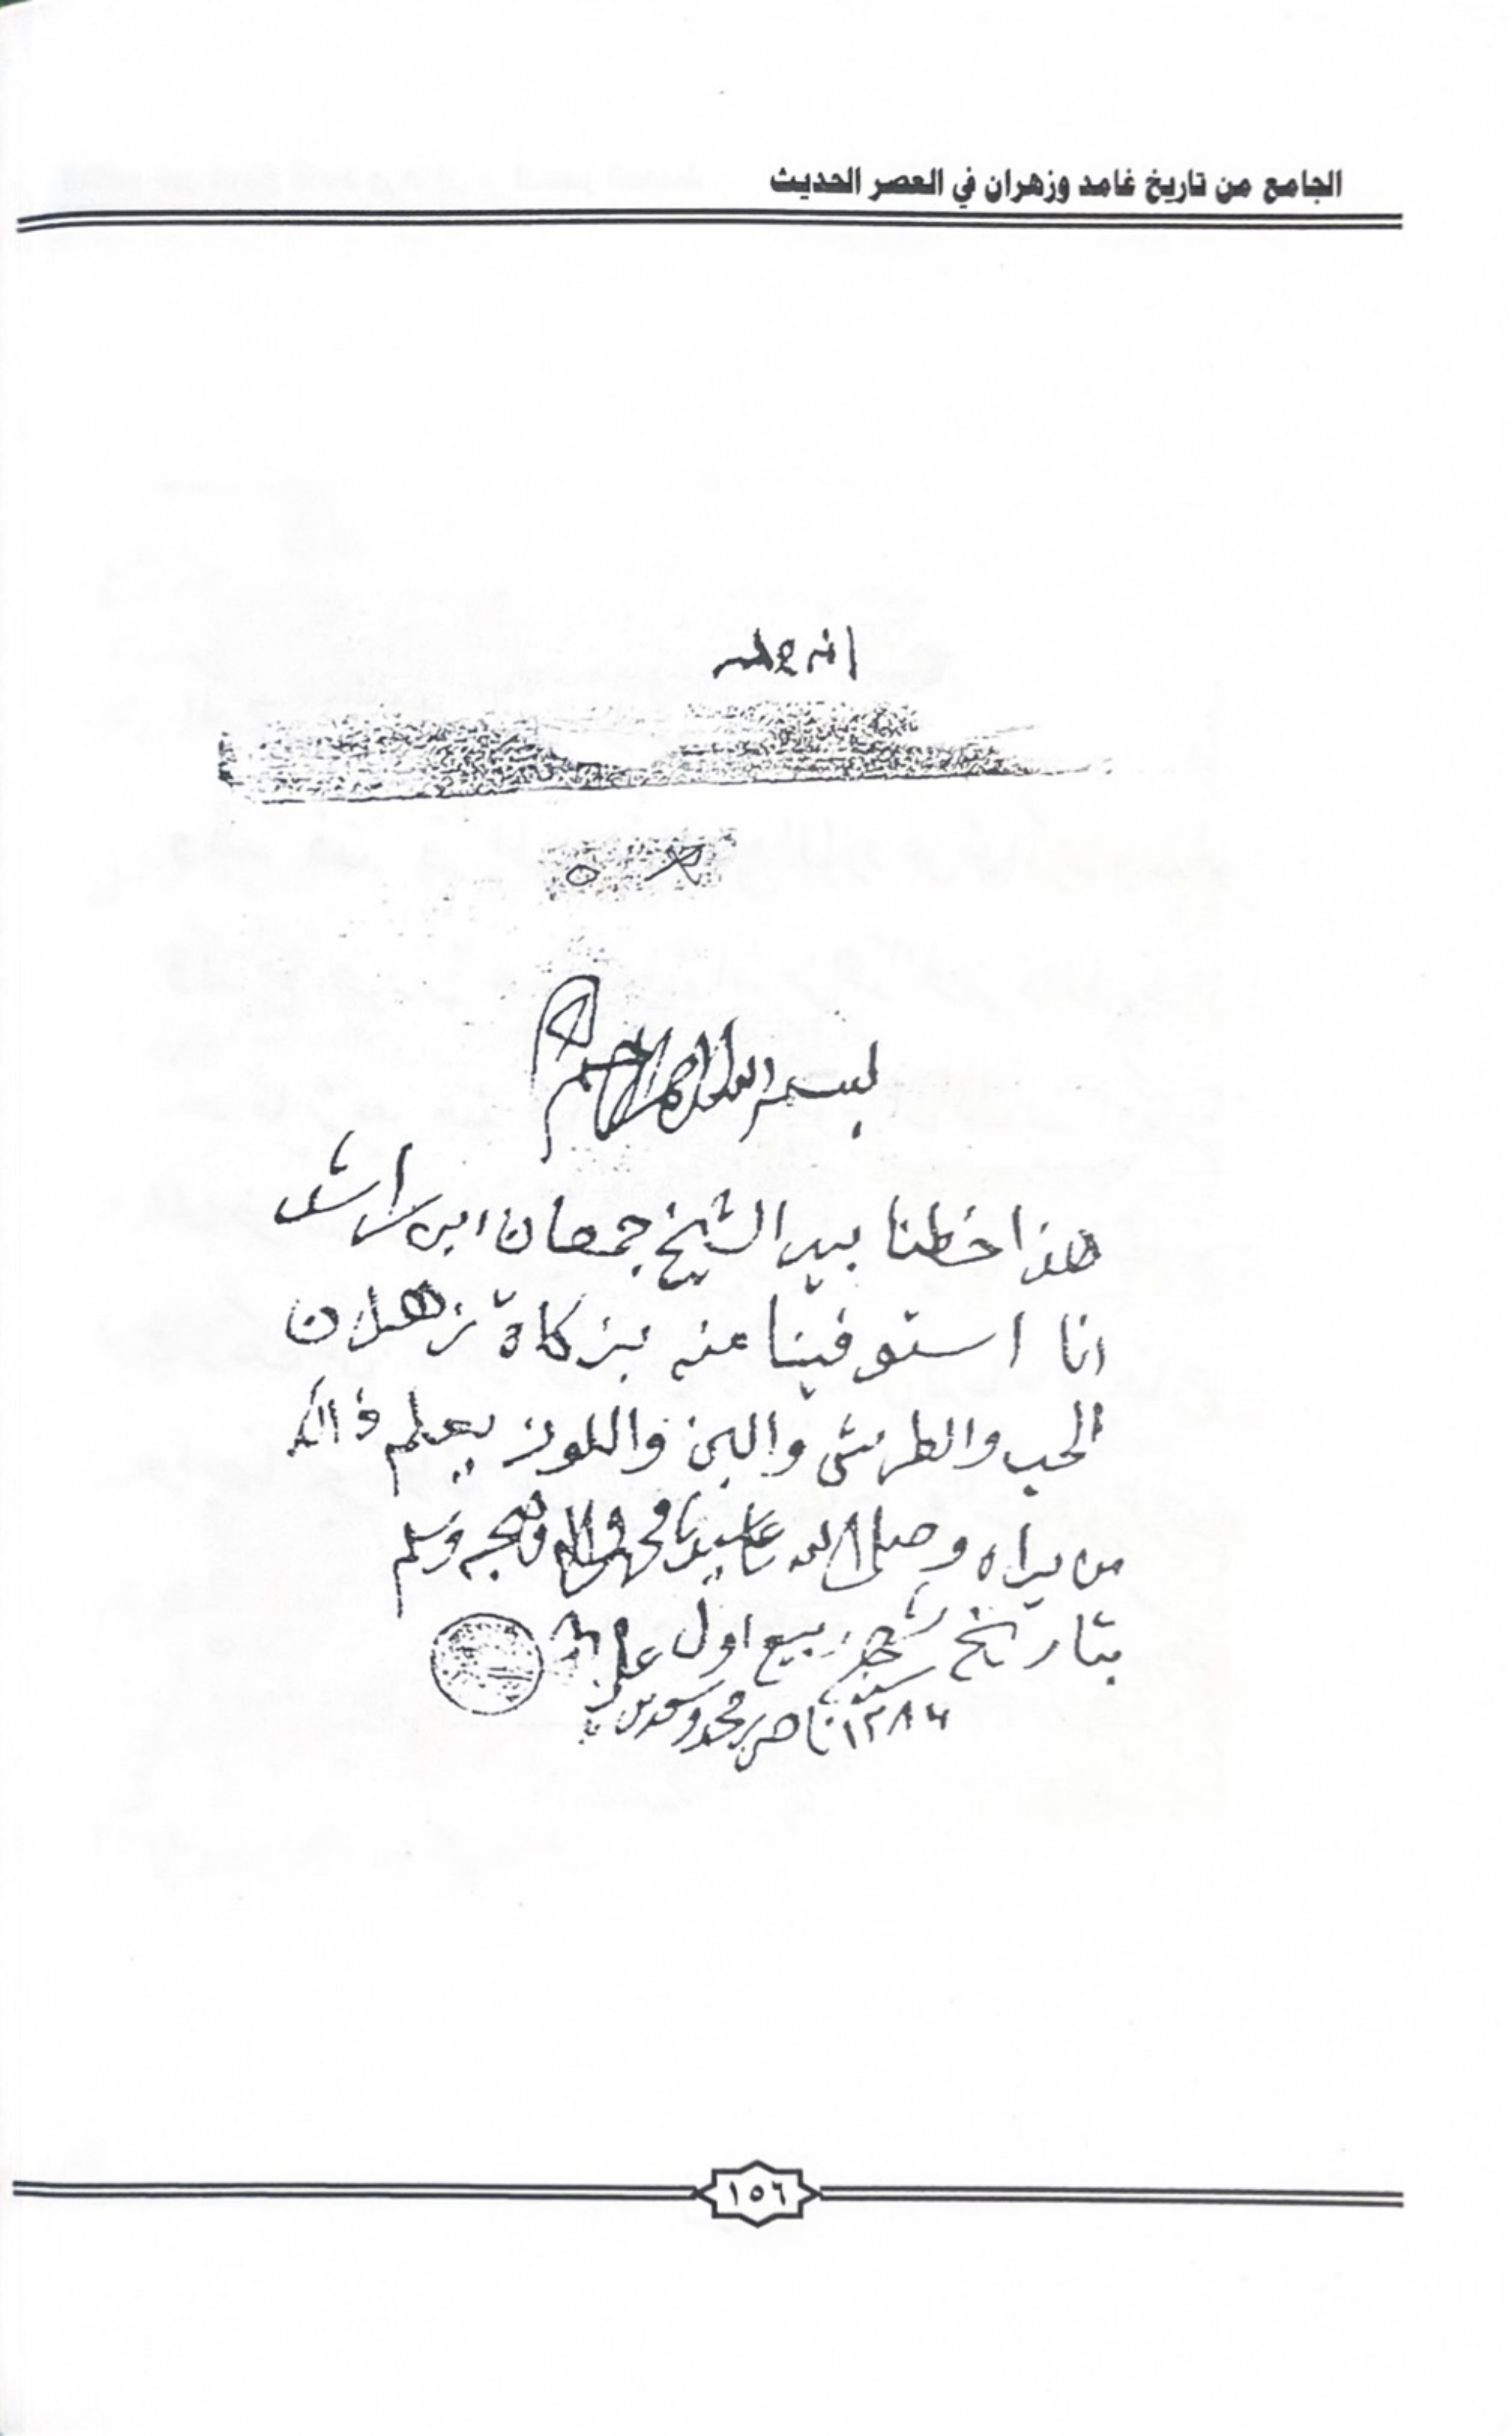 الجامع من تاريخ غامد وزهران في العصر الحديث
بسم الله الرحمن الرحيم
هذا خطنا بيد الشيخ جمعان ابن راشد
انا استوفينا منه بزكاة زهران
الحب والطرش والبن واللوز يعلم ذالك
من يراه وصلى الله على سيدنا محمد واله وصحبه وسلم
بتاريخ شهر ربيع اول
سنة ١٢٨٤ ناصر بن محمد وسعد بن
١٥٦